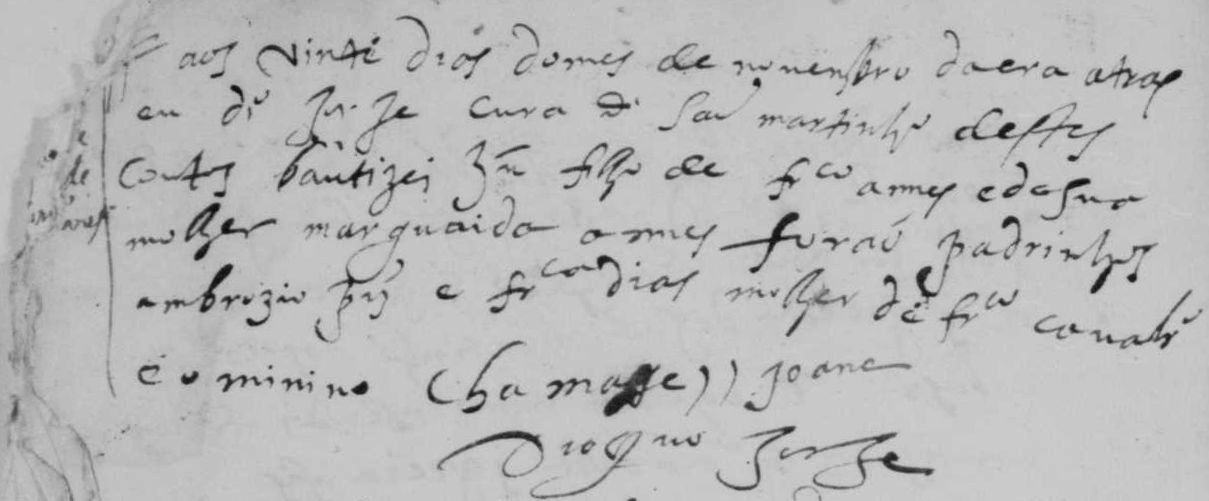 aos vinte dias do mes de novenbro da era atras
eu dº Jorze cura de São martinho destes
Coutos bautizei hũ filho de frco annes e de Sua
molher marguaida annes forão padrinhos
ambrozio e frca dias molher de frco
e o minino Chamase)) Joane
Dioguo Jorze